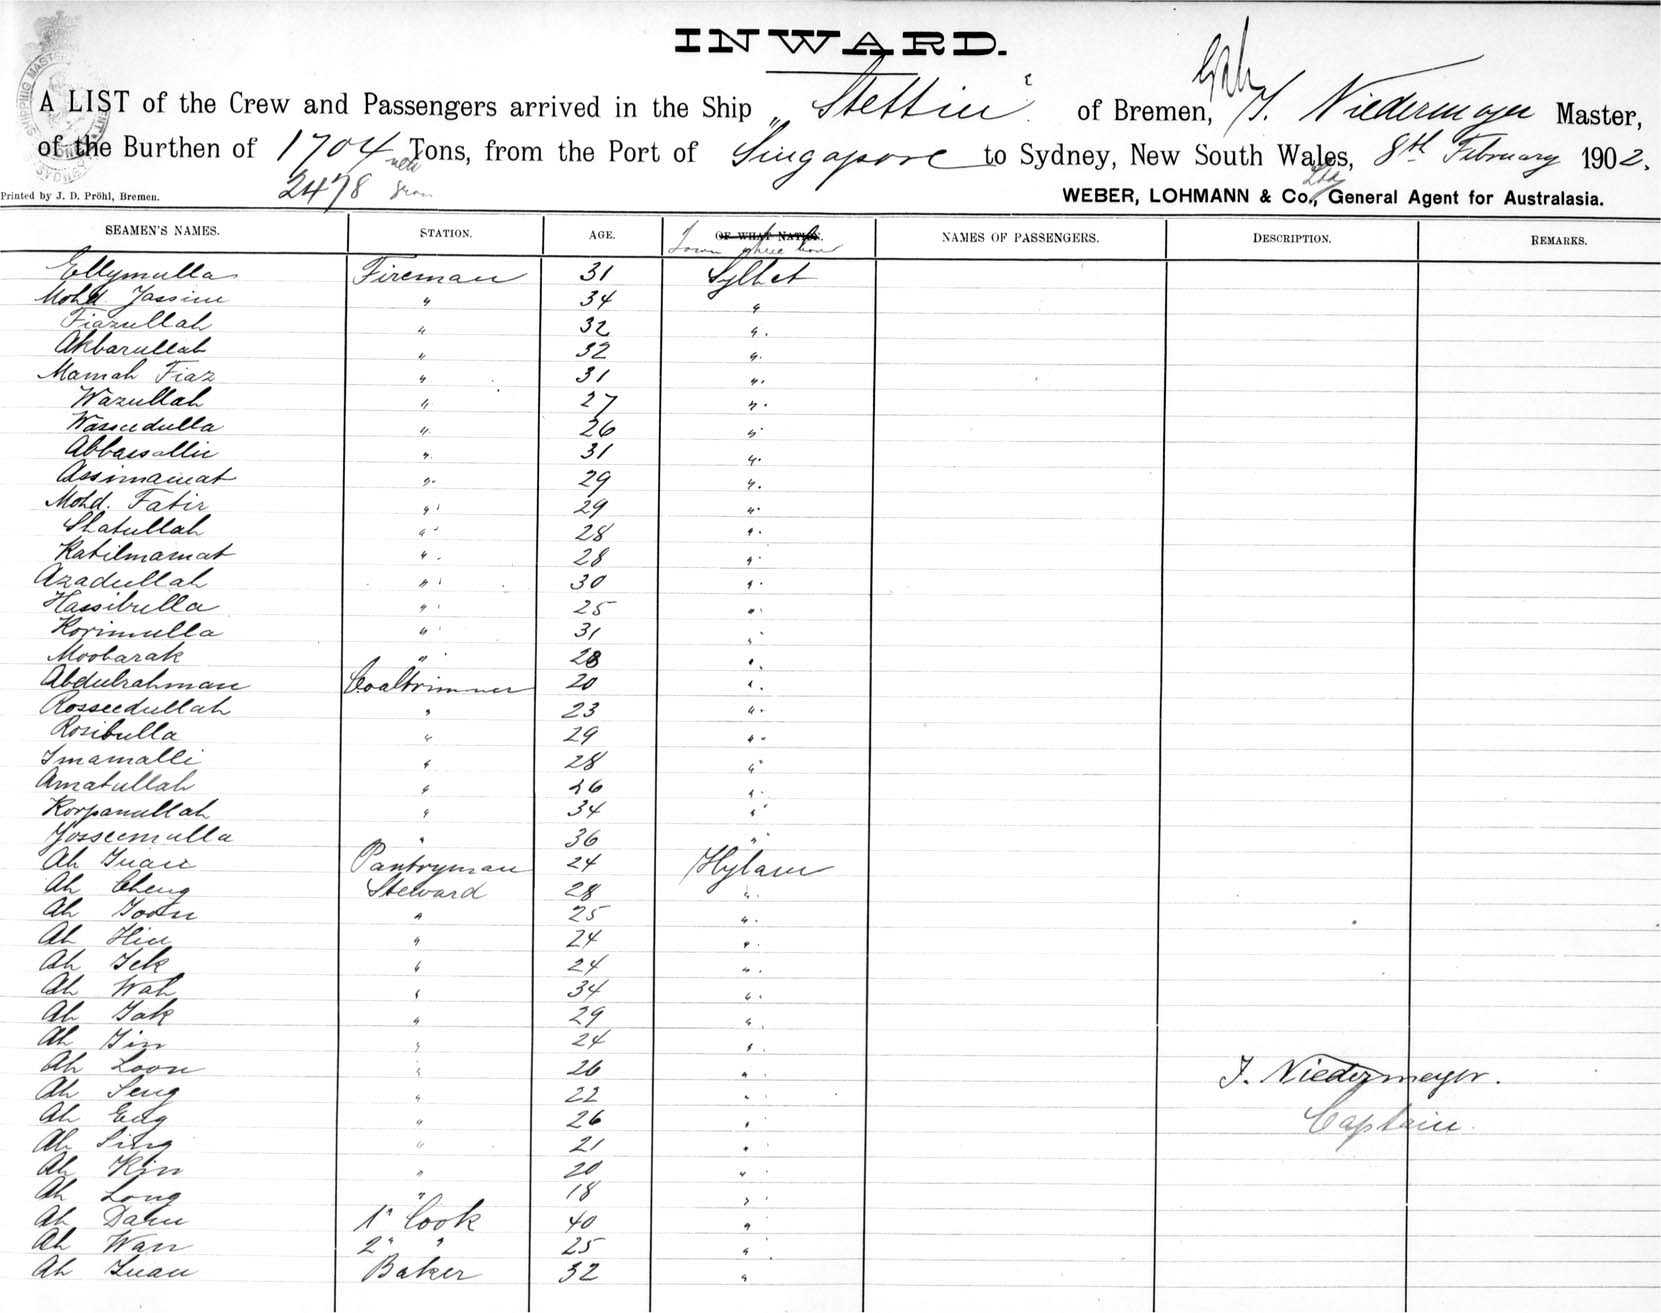 INWARD.
A LIST of the Crew and Passengers arrived in the Ship "Stettin" of Bremen, J. Niedermayer Master,
of the Burthen of 1704 nett Tons, from the Port of Singapore to Sydney, New South Wales, 8th February 1902.
2478 gross
Printed by J. D. Pröhl, Bremen. WEBER, LOHMANN & Co., Ltd General Agent for Australasia.
SEAMEN'S NAMES. STATION. AGE. OF WHAT NATION. NAMES OF PASSENGERS. DESCRIPTION. REMARKS.
Town where born
Ellymulla Fireman 31 Sylhet
Mohd Jassim " 34 "
Fiazullah " 32 "
Akbarullah " 32 "
Mamah Fiaz " 31 "
Wazullah " 27 "
Wasudulla " 26 "
Abbasallie " 31 "
Assimamat " 29 "
Mohd. Fatir " 29 "
Shatullah " 28 "
Katilmamat " 28 "
Azadullah " 30 "
Hassibulla " 25 "
Korimulla " 31 "
Moobarak " 28 "
Abdulrahman Coaltrimmer 20 "
Rosseedullah " 23 "
Rosibulla " 29 "
Imamalli " 28 "
Amatullah " 26 "
Korpanullah " 34 "
Josseemulla " 36 "
Ah Juan Pantryman 24 Hylam
Ah Cheng Steward 28 "
Ah Joon " 25 "
Ah Hin " 24 "
Ah Jek " 24 "
Ah Wah " 34 "
Ah Jak " 29 "
Ah Jin " 24 "
Ah Loon " 26 " J. Niedermeyer.
Ah Seng " 22 "
Ah Eng " 26 " Captain.
Ah Sing " 21 "
Ah Kin " 20 "
Ah Long " 18 "
Ah Dam 1" Cook 40 "
Ah Wan 2" " 25 "
Ah Juan Baker 32 "